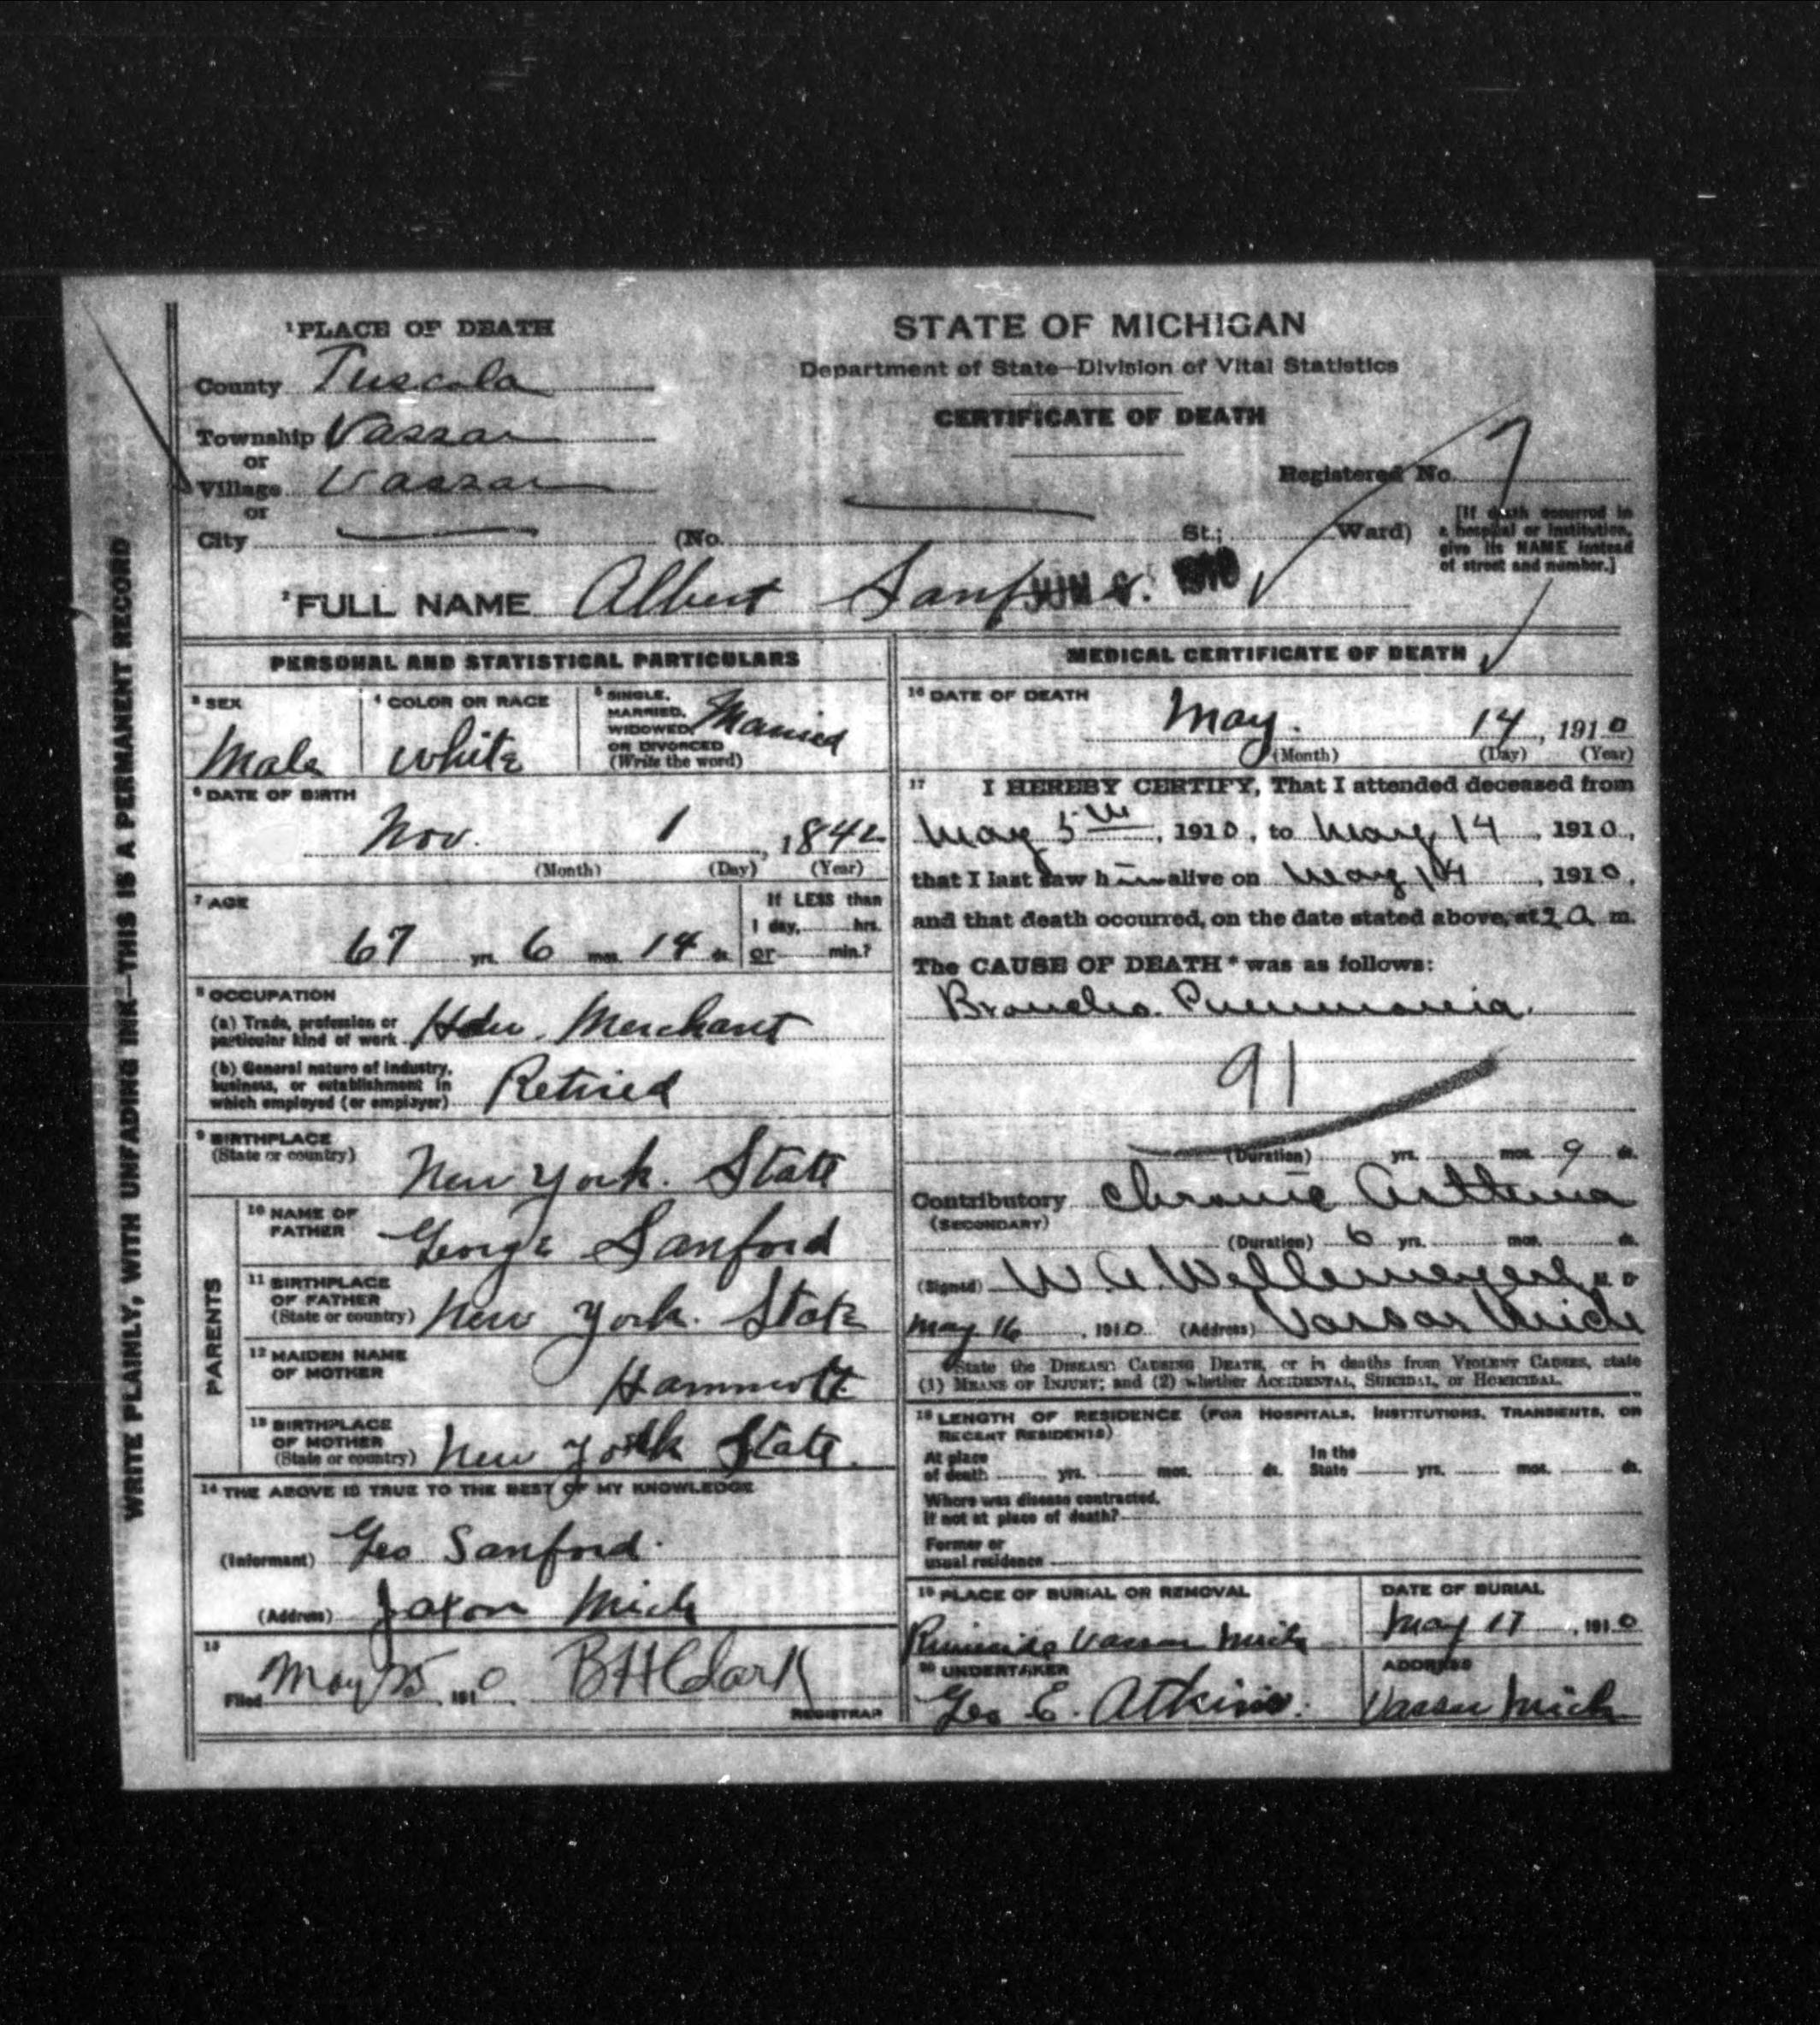 ¹PLACE OF DEATH
County Tuscola
Township Vassar
or
Village Vassar
or
City
STATE OF MICHIGAN
Department of State—Division of Vital Statistics
CERTIFICATE OF DEATH
Registered No. 7
(No. St.; Ward)
[If death occurred in
a hospital or institution,
give its NAME instead
of street and number.]
JUN 6. 1910
²FULL NAME Albert Sanford
WRITE PLAINLY, WITH UNFADING INK—THIS IS A PERMANENT RECORD
PERSONAL AND STATISTICAL PARTICULARS
³ SEX
Male
⁴ COLOR OR RACE
White
⁵ SINGLE,
MARRIED,
WIDOWED,
OR DIVORCED
(Write the word)
Married
⁶ DATE OF BIRTH
Nov. 1, 1842
(Month) (Day) (Year)
⁷ AGE
67 yrs. 6 mos. 14 ds.
If LESS than
1 day, hrs.
or min.?
⁸ OCCUPATION
(a) Trade, profession or
particular kind of work Hdw. Merchant
(b) General nature of industry,
business, or establishment in
which employed (or employer) Retired
⁹ BIRTHPLACE
(State or country)
New York. State
PARENTS
¹⁰ NAME OF
FATHER
George Sanford
¹¹ BIRTHPLACE
OF FATHER
(State or country) New York. State
¹² MAIDEN NAME
OF MOTHER
Hammott
¹³ BIRTHPLACE
OF MOTHER
(State or country) New York State.
¹⁴ THE ABOVE IS TRUE TO THE BEST OF MY KNOWLEDGE
(Informant) Geo Sanford.
(Address) Jaxon Mich
¹⁵
Filed May 25, 1910 B H Clark
REGISTRAR
MEDICAL CERTIFICATE OF DEATH
¹⁶ DATE OF DEATH
May. 14, 1910
(Month) (Day) (Year)
¹⁷ I HEREBY CERTIFY, That I attended deceased from
May 5th, 1910, to May 14, 1910,
that I last saw him alive on May 14, 1910,
and that death occurred, on the date stated above, at 2 a m.
The CAUSE OF DEATH* was as follows:
Broncho. Pneumonia.
91
(Duration) yrs. mos. 9 ds.
Contributory Chronic Asthma
(SECONDARY)
(Duration) 6 yrs. mos. ds.
(Signed) W. A. M. D.
May 16, 1910 (Address) Vassar Mich
*State the DISEASE CAUSING DEATH, or in deaths from VIOLENT CAUSES, state
(1) MEANS OF INJURY; and (2) whether ACCIDENTAL, SUICIDAL, or HOMICIDAL.
¹⁸ LENGTH OF RESIDENCE (FOR HOSPITALS, INSTITUTIONS, TRANSIENTS, OR
RECENT RESIDENTS)
At place
of death yrs. mos. ds.
In the
State yrs. mos. ds.
Where was disease contracted,
if not at place of death?
Former or
usual residence
¹⁹ PLACE OF BURIAL OR REMOVAL
Riverside Vassar Mich
DATE OF BURIAL
May 17, 1910
²⁰ UNDERTAKER
Geo E. Atkins.
ADDRESS
Vassar Mich